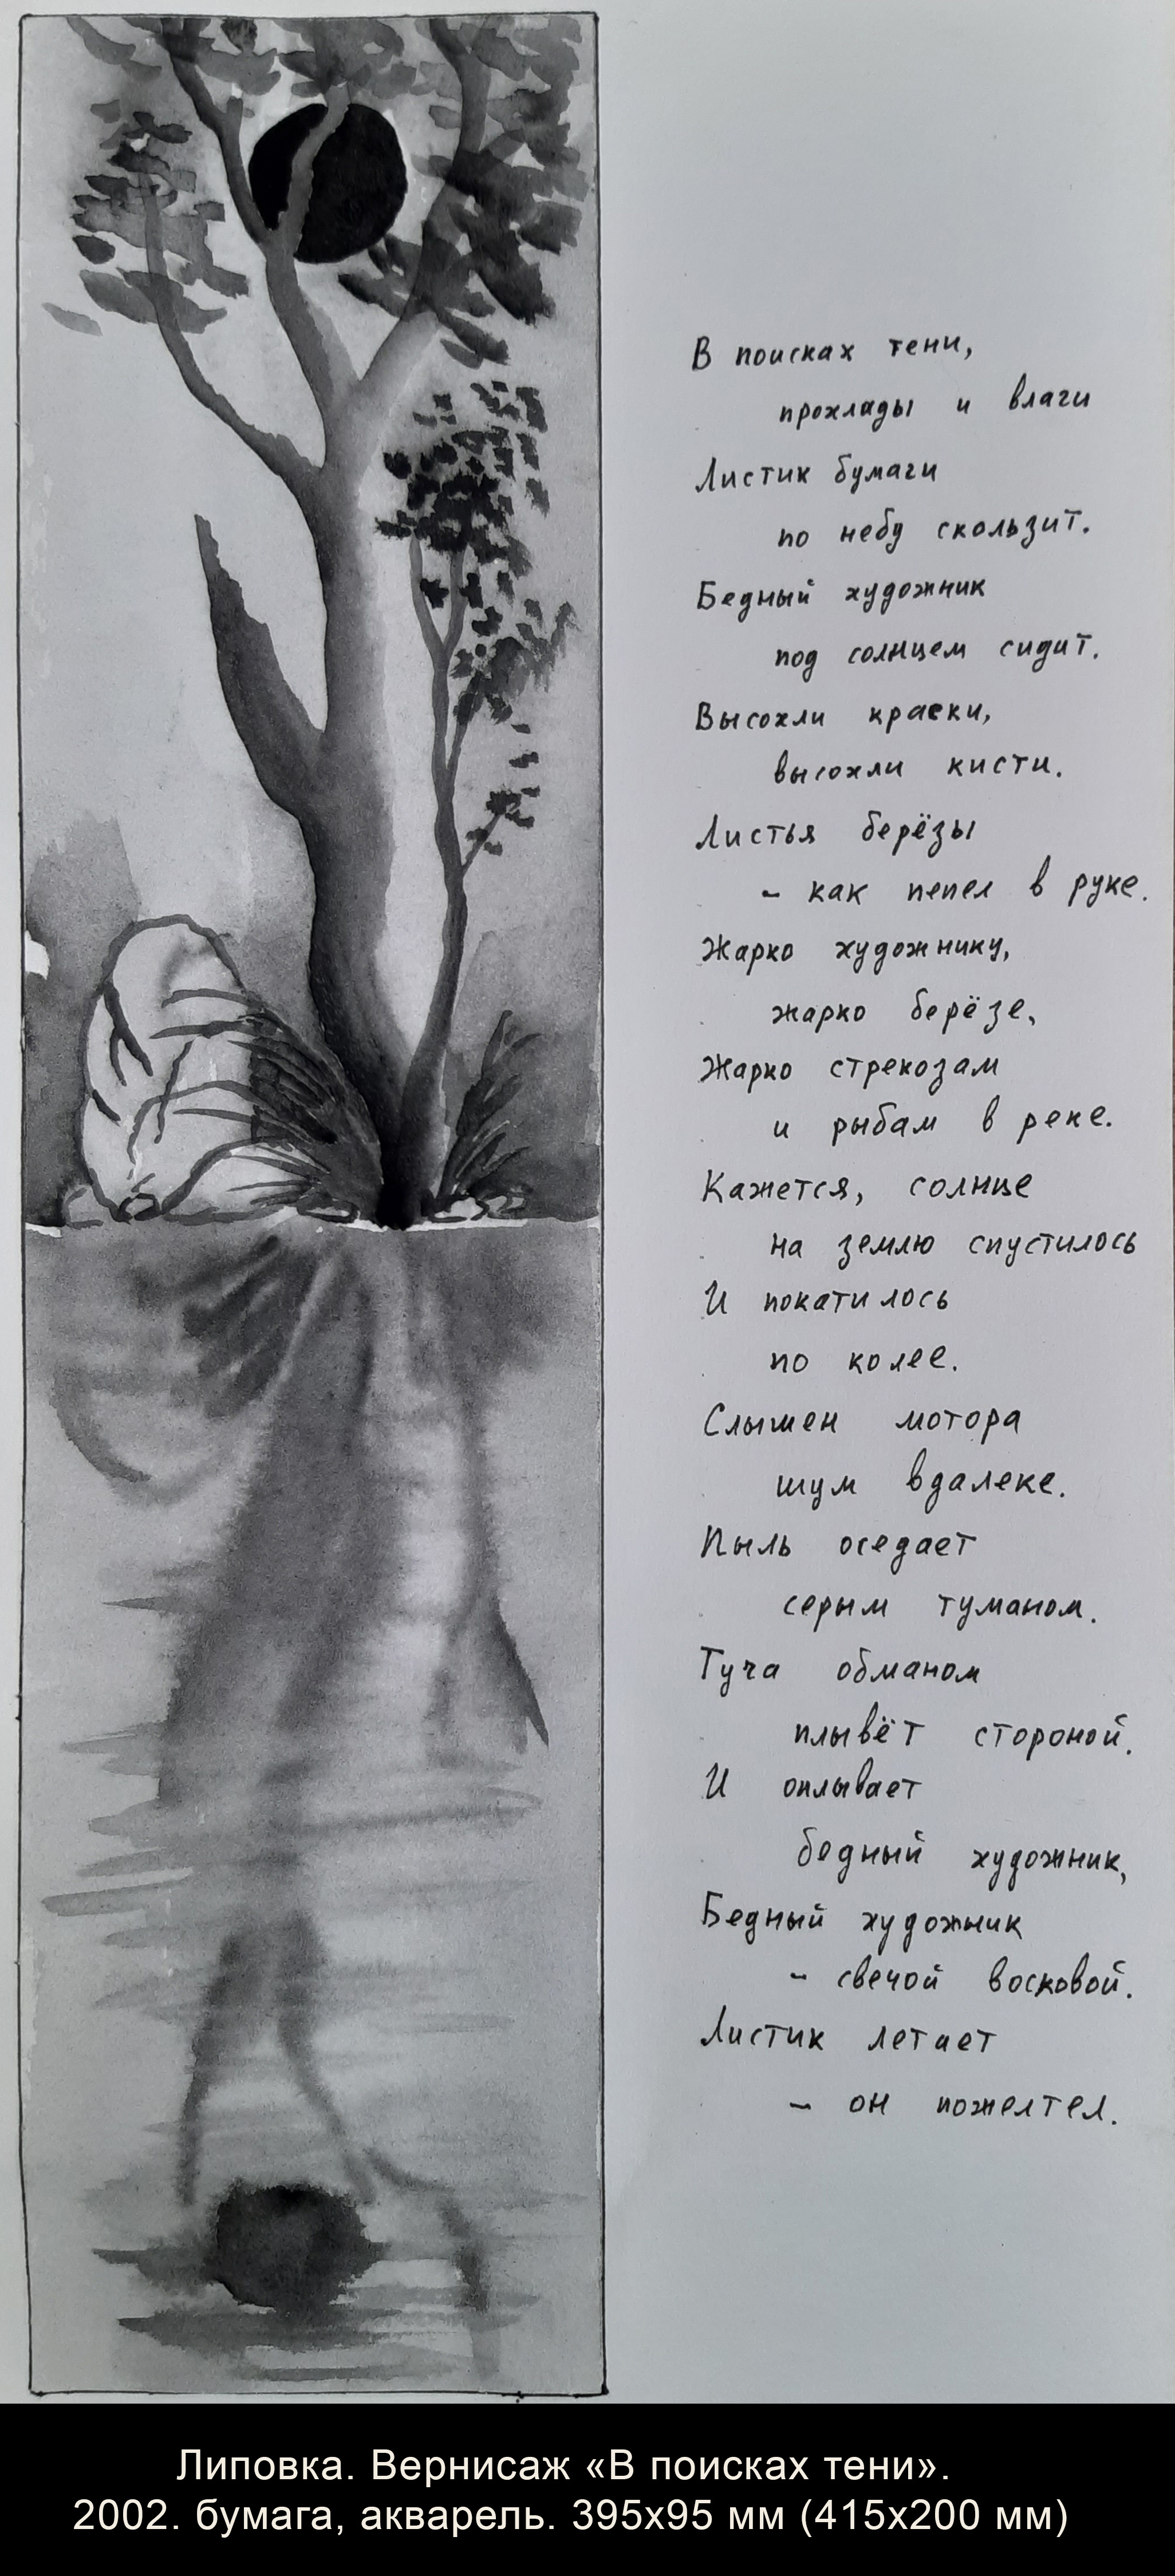 В поисках тени,
прохлады и влаги
Листик бумаги
по небу скользит.
Бедный художник
под солнцем сидит.
Высохли краски,
высохли кисти.
Листья берёзы
- как пепел в руке.
Жарко художнику,
жарко берёзе,
Жарко стрекозам
и рыбам в реке.
Кажется, солнце
на землю спустилось
И покатилось
по колее.
Слышен мотора
шум вдалеке.
Пыль оседает
серым туманом.
Туча обманом
плывёт стороной.
И оплывает
бедный художник,
Бедный художник
- свечой восковой.
Листик летает
- он пожелтел.
Липовка. Вернисаж «В поисках тени».
2002. бумага, акварель. 395х95 мм (415х200 мм)